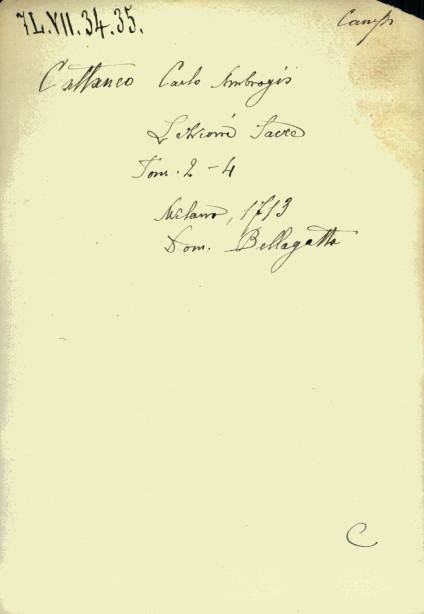 7L.VII.34.35.
Camp
Cattaneo Carlo Ambrogio
Lezioni Sacre
Tom. 2 - 4
Milano, 1713
Dom. Bellagatta
C